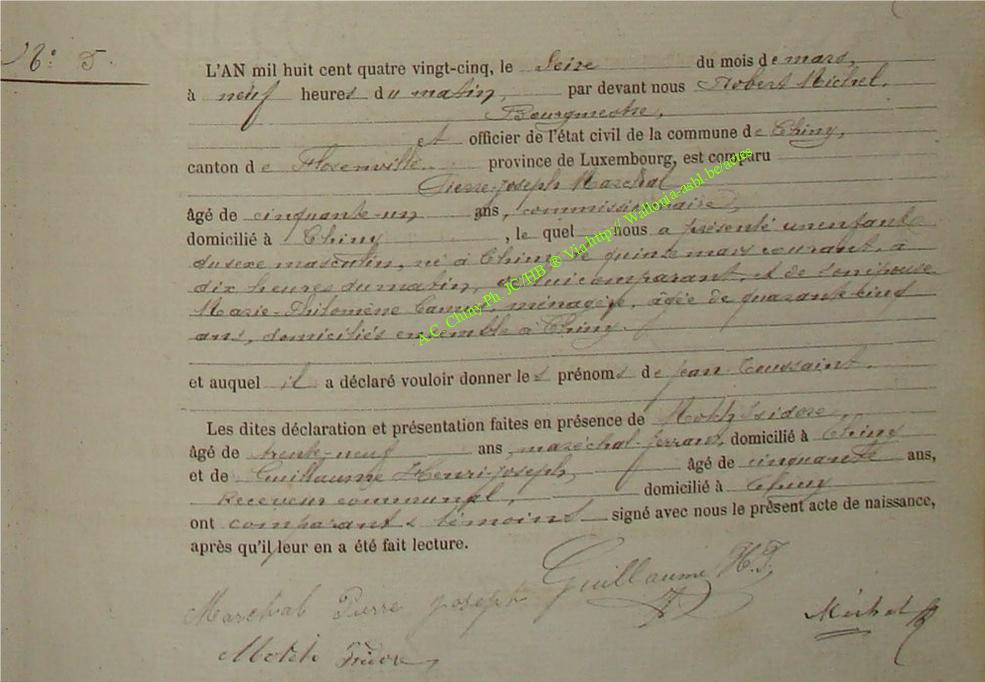 N° 5.
L'AN mil huit cent quatre vingt-cinq, le Seize du mois de mars,
à neuf heures du matin, par devant nous Robert Michel,
Bourgmestre,
et officier de l'état civil de la commune de Chiny,
canton de Florenville province de Luxembourg, est comparu
Pierre-Joseph Marchal
âgé de cinquante-un ans, commissionnaire,
domicilié à Chiny, le quel nous a présenté un enfant
du sexe masculin, né à Chiny le quinze mars courant, à
dix heures du matin, de lui comparant, et de son épouse
Marie-Philomène, ménagère, âgée de quarante-cinq
ans, domiciliés ensemble à Chiny.
et auquel il a déclaré vouloir donner les prénoms de Jean Toussaint.
Les dites déclaration et présentation faites en présence de Isidore,
âgé de trente-neuf ans, maréchal-ferrant, domicilié à Chiny
et de Guillaume Henri-Joseph, âgé de cinquante ans,
Receveur communal, domicilié à Chiny
ont comparant & témoins signé avec nous le présent acte de naissance,
après qu'il leur en a été fait lecture.
Guillaume H.J.
Marchal Pierre joseph
Michel
A.C. Chiny Ph JC/HB ® Via http:// Wallonia-asbl.be/actes